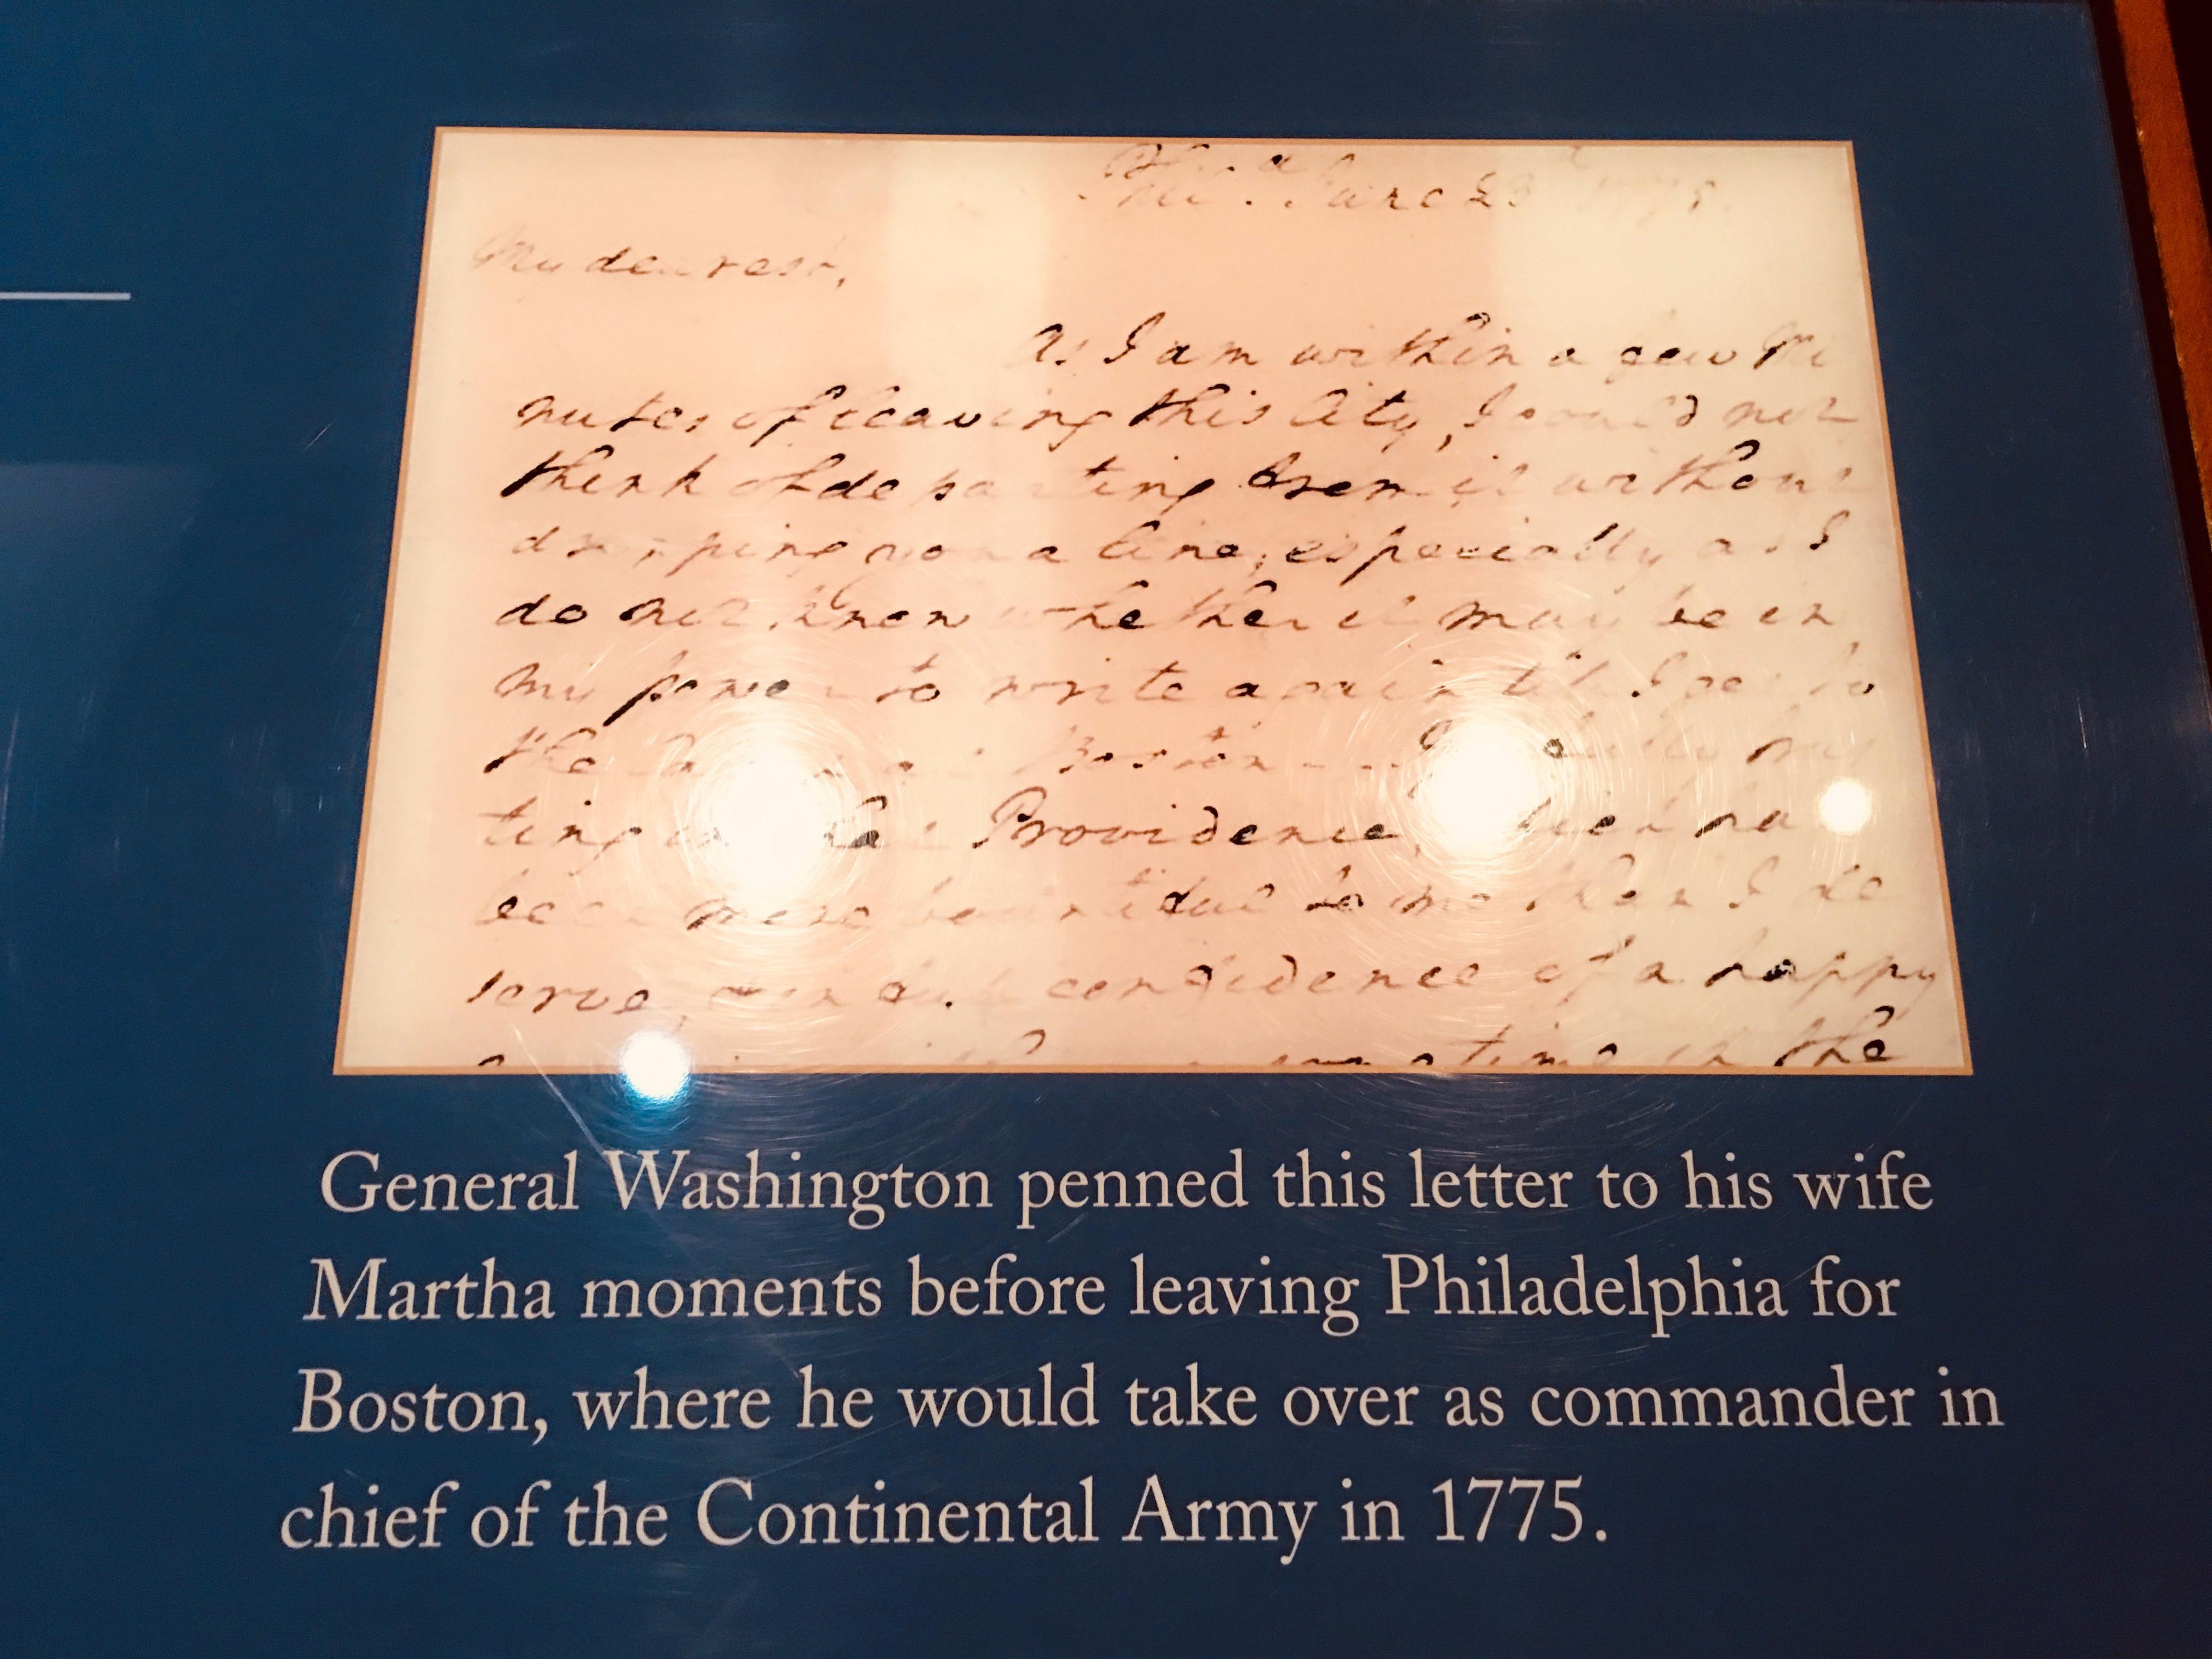 Phila. June 23d 1775.
My dearest,
As I am within a few Mi
nutes of leaving this City, I could not
think of departing from it without
dropping you a line; especially as I
do not know whether it may be in
my power to write again till I get to
the Camp at Boston — I go fully trus
ting in that Providence, which has
been more bountiful to me than I de
serve, & in full confidence of a happy
time in the
General Washington penned this letter to his wife
Martha moments before leaving Philadelphia for
Boston, where he would take over as commander in
chief of the Continental Army in 1775.